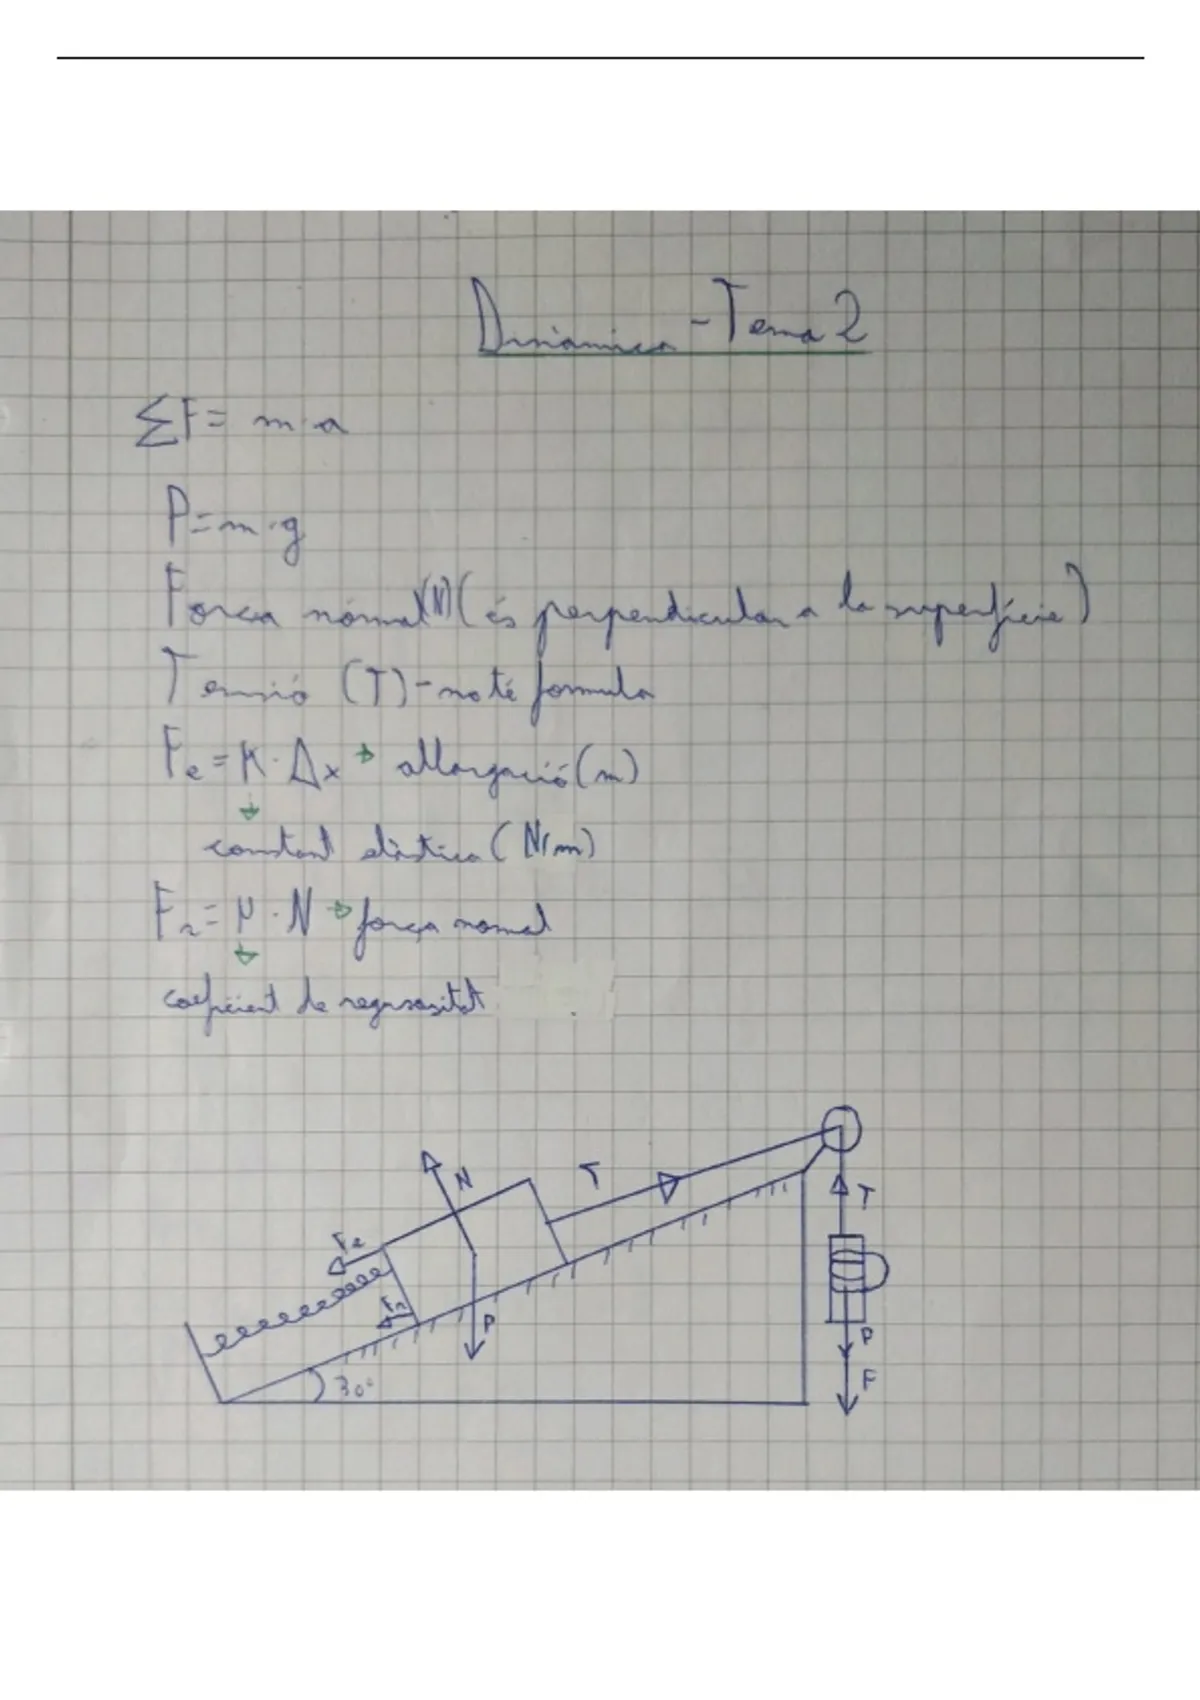 Dinàmica - Tema 2
ΣF = m·a
P = m·g
Força nòrmal (N) (és perpendicular a la superfície)
Tensió (T) - no té formula
Fe = K · Δx → allargació (m)
constant elàstica (N/m)
Fr = μ · N → força normal
coeficient de regusositat
N
T
Fe
T
Fr
P
P
30°
F